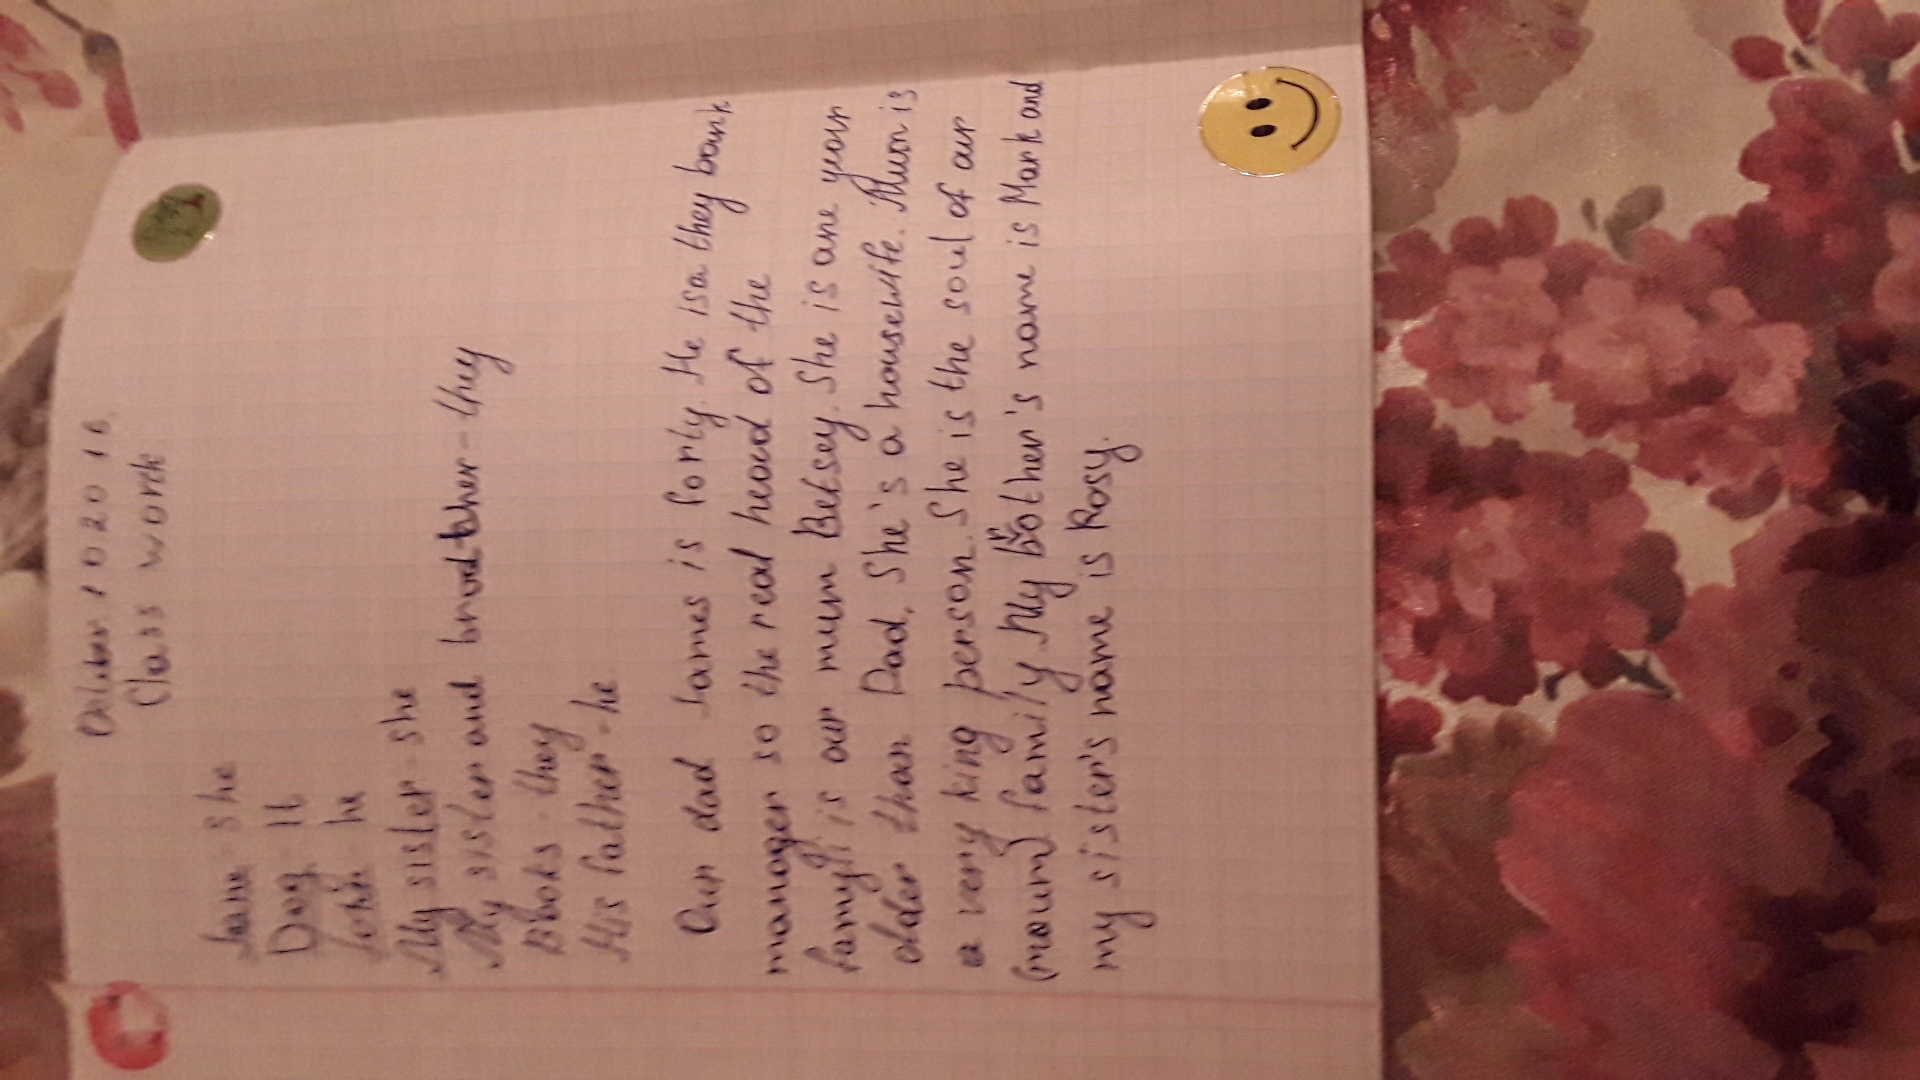 October 10 2016.
Class work.
Jane - she
Dog - It
John - he
My sister - she
My sister and brodther - they
Books - they
His father - he
Our dad James is forty. He is a they bank
manager so the real head of the
famyli is our mum Betsey. She is one year
older than Dad. She's a housewife. Mum is
a very king person. She is the soul of our
(mound family. My brother's name is Mark and
my sister's name is Rosy.